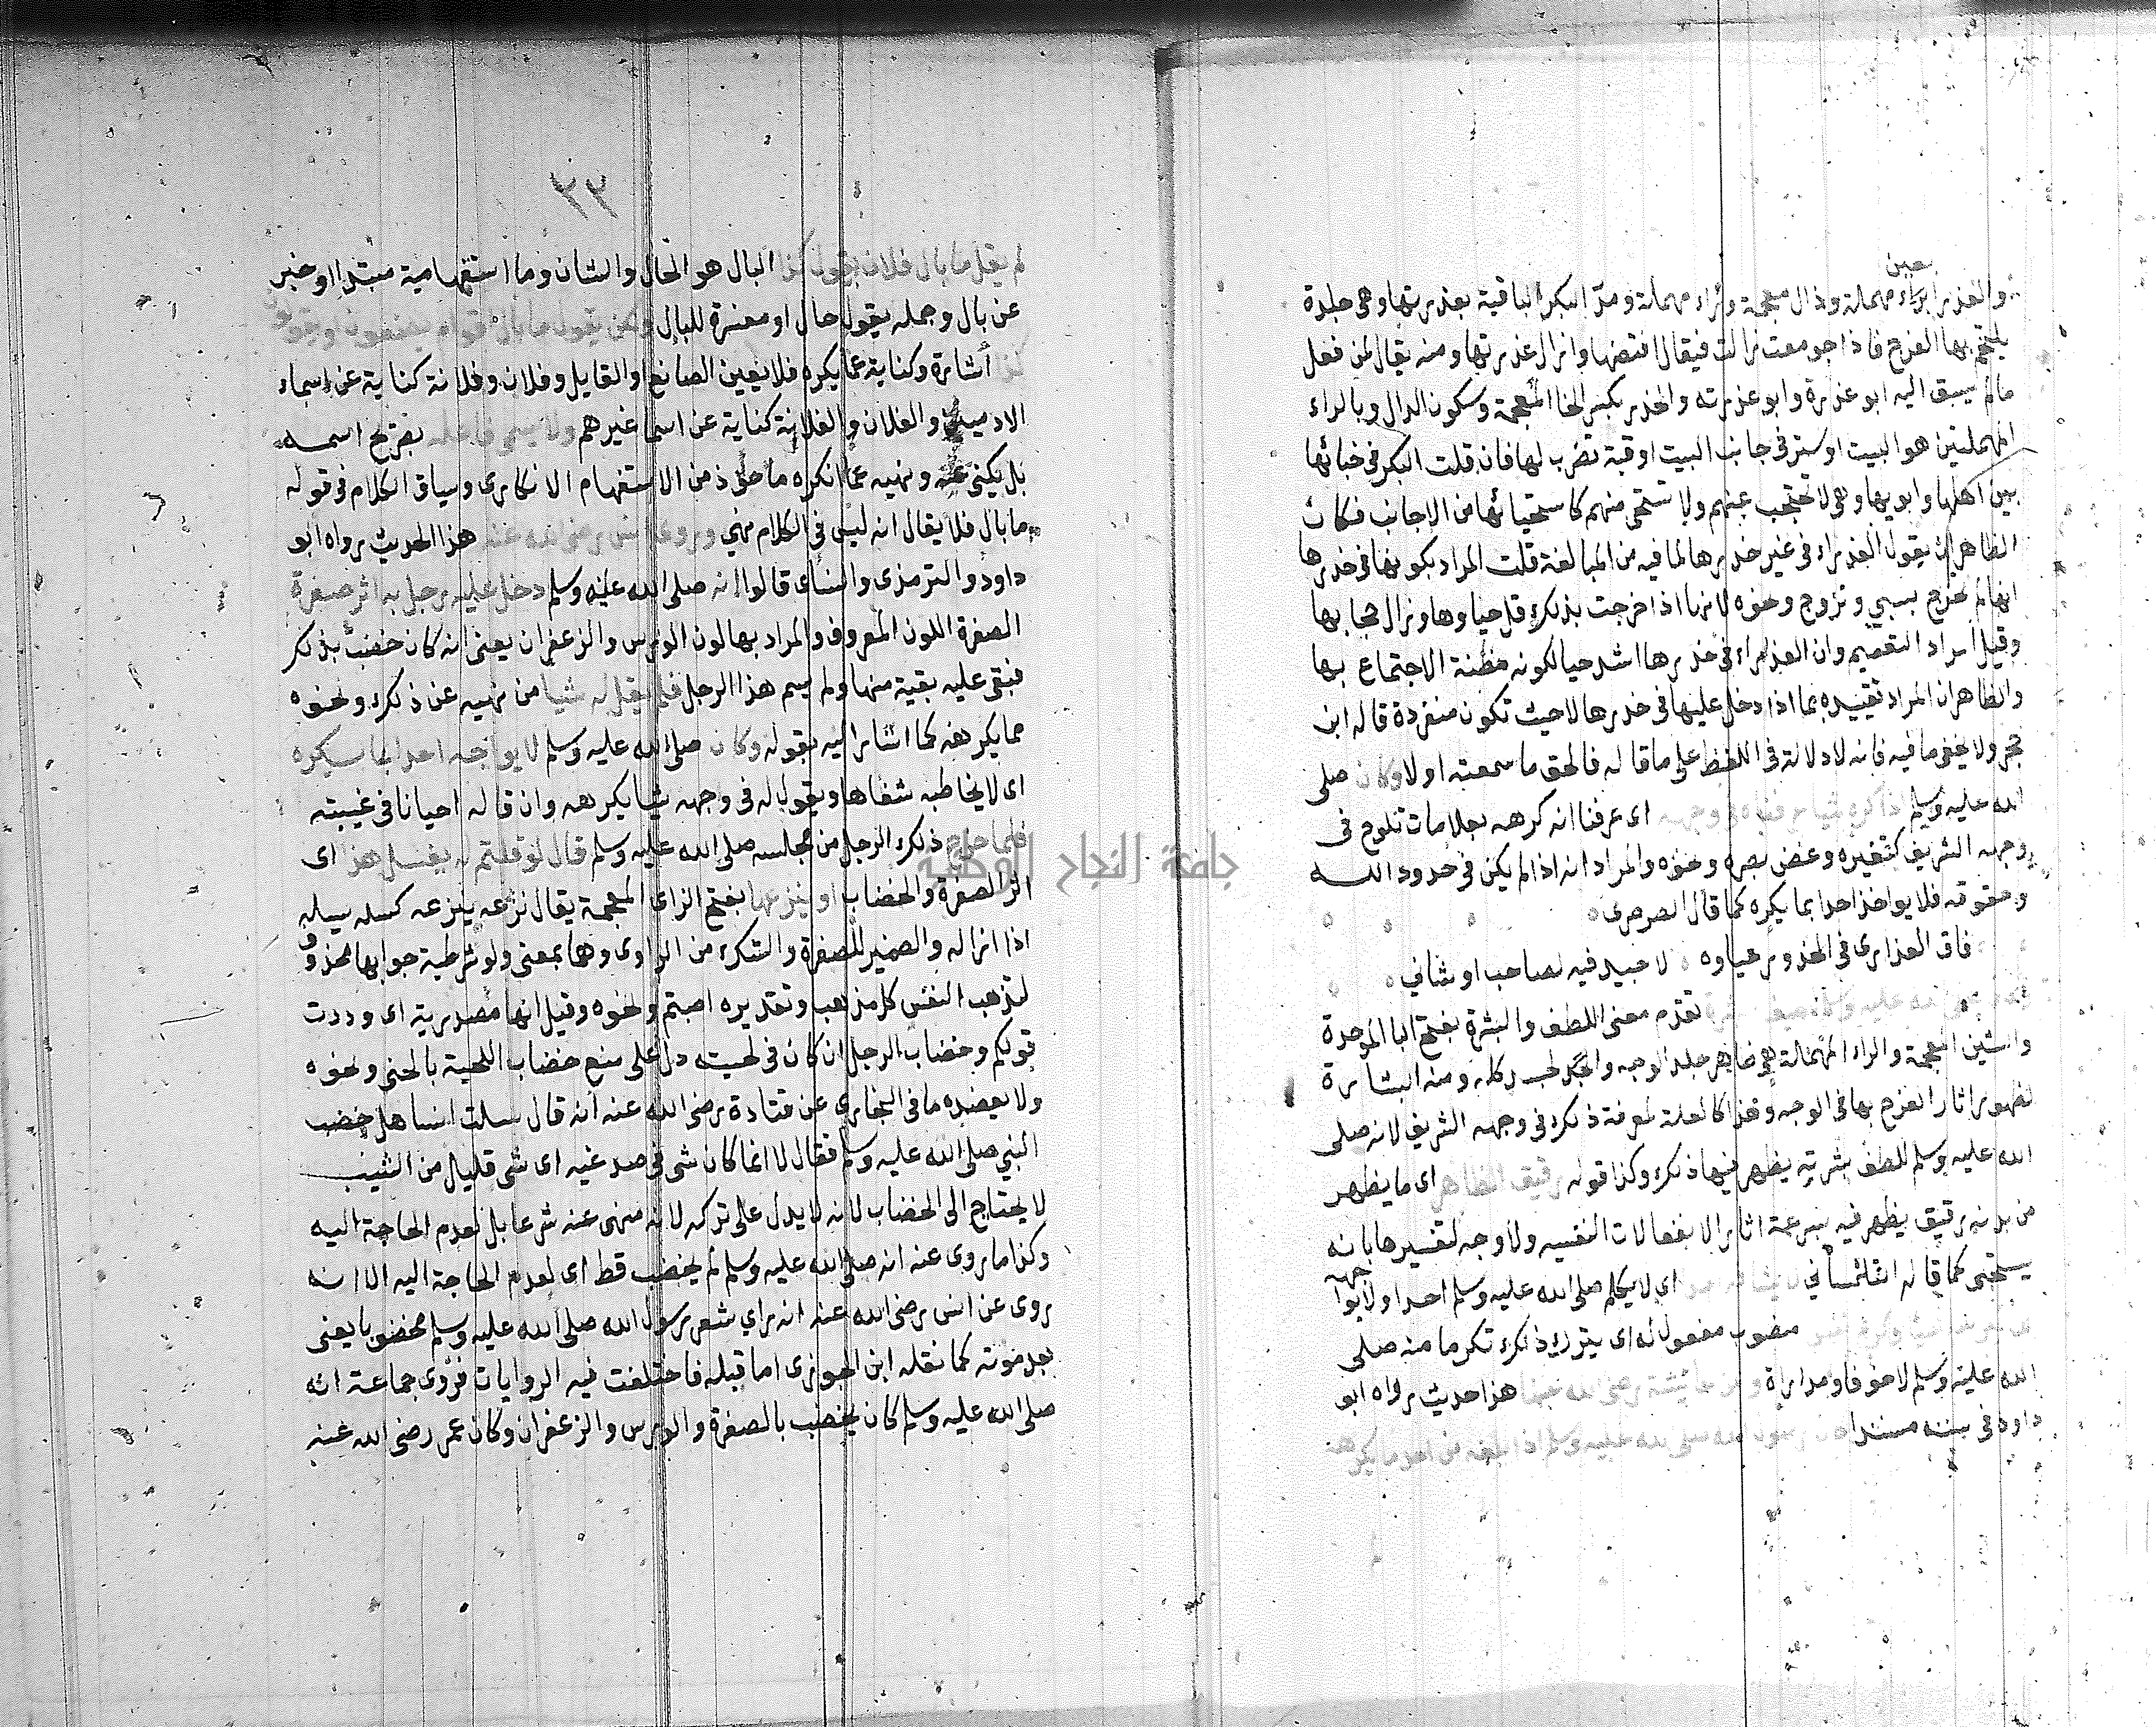 بعين
والعذرا براء مهملة وذال معجمة وراء مهملة ومد البكر الباقية بعذرتها وهى جلدة
يلتحم بها الفرج فاذا جومعت زالت فيقال افتضها وازال عذرتها ومنه يقال لمن فعل
مالم يسبق اليه ابو عذرة وابو عذرته والخدر بكسر الخا المعجمة وسكون الدال وبالراء
المهملتين هو البيت او ستر فى جانب البيت او قبة تضرب لها فان قلت البكر فى خبائها
بين اهلها وابويها وهى لا تحتجب عنهم ولا تستحى منهم كاستحيائها من الاجانب فكان
الظاهر ان يقول العذراء فى غير خدرها لما فيه من المبالغة قلت المراد بكونها فى خدرها
انها لم تخرج بسبي وتزوج ونحوه لانها اذا خرجت بذلك قل حياوها وزال حجابها
وقيل اراد التعميم وان العذراء فى خدرها اشد حيا لكونه مظنة الاجتماع بها
والظاهر ان المراد تقييده بما اذا دخل عليها فى خدرها لا حيث تكون منفردة قاله ابن
حجر ولا يخفى ما فيه فانه لا دلالة فى اللفظ على ما قاله فالحق ما سمعته اولا وكان صلى
الله عليه وسلم اذا كره شيا عرفناه فى وجهه اى عرفنا انه كرهه بعلامات تلوح فى
وجهه الشريف كتغيره وغض بصره ونحوه والمراد انه اذا لم يكن فى حدود الله
وحقوقه فلا يواخذ احدا بما يكره كما قال الصرصرى
فاق العذارى فى الخدور حياوه لا حبيد فيه لصاحب او شانى
تقدم معنى اللطف والبشرة بفتح البا الموحدة
والشين المعجمة والراء المهملة هى ظاهر جلد الوجه والجسد كله ومنه البشارة
لظهور اثار الفرح بها فى الوجه وهذا كالعلة لمعرفة ذلك فى وجهه الشريف لانه صلى
الله عليه وسلم للطف بشرته يظهر فيها ذلك وكذا قوله رقيق الظاهر اى ما يظهر
من بدنه رقيق يظهر فيه بسرعة اثار الانفعالات النفسيه ولا وجه لتفسيرها بانه
يستحى كما قاله التلمسانى لا يشافه احدا اى لا يكلم صلى الله عليه وسلم احدا ولا يواجهه
منصوب مفعول له اى يترك ذلك تكرما منه صلى
الله عليه وسلم لا خوفا ومداراة وعن عائشة رضى الله عنها هذا حديث رواه ابو
داود فى سننه مسندا كان رسول الله صلى الله عليه وسلم اذا بلغه عن احد ما يكرهه
٢٢
لم يقل ما بال فلان يقول كذا البال هو الحال والشان وما استفهامية مبتدا او خبر
عن بال وجمله يقول حال او مفسرة للبال ولكن يقول ما بال اقوام يصنعون او يقولون
كذا أشارة وكناية عما يكره فلا يعين الصانع او القايل وفلان وفلانة كناية عن اسماء
الادميين والفلان والفلانة كناية عن اسما غيرهم ولا يسمى فاعله بصريح اسمه
بل يكنى عنه ونهيه عما انكره ماخوذ من الاستفهام الانكارى وسياق الكلام فى قوله
ما بال فلا يقال انه ليس فى الكلام نهي وروى انس رضى الله عنه هذا الحديث رواه ابو
داود والترمذى والنسأى قالوا انه صلى الله عليه وسلم دخل عليه رجل به اثر صفرة
الصفرة اللون المعروف والمراد بها لون الورس والزعفران يعنى انه كان خضب بذلك
فبقى عليه بقية منها ولم يسم هذا الرجل فلم يقل له شيا من نهيه عن ذلك ونحوه
مما يكرهه كما اشار اليه بقوله وكان صلى الله عليه وسلم لا يواجه احدا بما يكره
اى لا يخاطبه شفاها ويقول له فى وجهه شيا يكرهه وان قاله احيانا فى غيبته
فلما خرج ذلك الرجل من مجلسه صلى الله عليه وسلم قال لو قلتم له يغسل هذا اى
اثر الصفرة والخضاب او ينزعها بفتح الزاى المعجمة يقال نزعه ينزعه كسله يسيله
اذا ازاله والضمير للصفرة والشك من الراوى وهما بمعنى ولو شرطية جوابها محذوف
لتذهب النفس كل مذهب وتقديره اصبتم ونحوه وقيل انها مصدرية اى وددت
قولكم وخضاب الرجل ان كان فى لحيته دل على منع خضاب اللحية بالحنى ونحوه
ولا يعضده ما فى البخارى عن قتادة رضى الله عنه أنه قال سالت انسا هل خضب
النبي صلى الله عليه وسلم فقال لا انما كان شى فى صدغيه اى شى قليل من الشيب
لا يحتاج الى الخضاب لانه لا يدل على تركه لانه منهى عنه شرعا بل لعدم الحاجة اليه
وكذا ما روى عنه انه صلى الله عليه وسلم لم يخضب قط اى لعدم الحاجة اليه الا انه
روى عن انس رضى الله عنه انه راى شعر رسول الله صلى الله عليه وسلم مخضوبا يعنى
بعد موته كما نقله ابن الجوزى اما قبله فاختلفت فيه الروايات فروى جماعة انه
صلى الله عليه وسلم كان يخضب بالصفرة والورس والزعفران وكان عمر رضى الله عنه
جامعة النجاح الوطنية